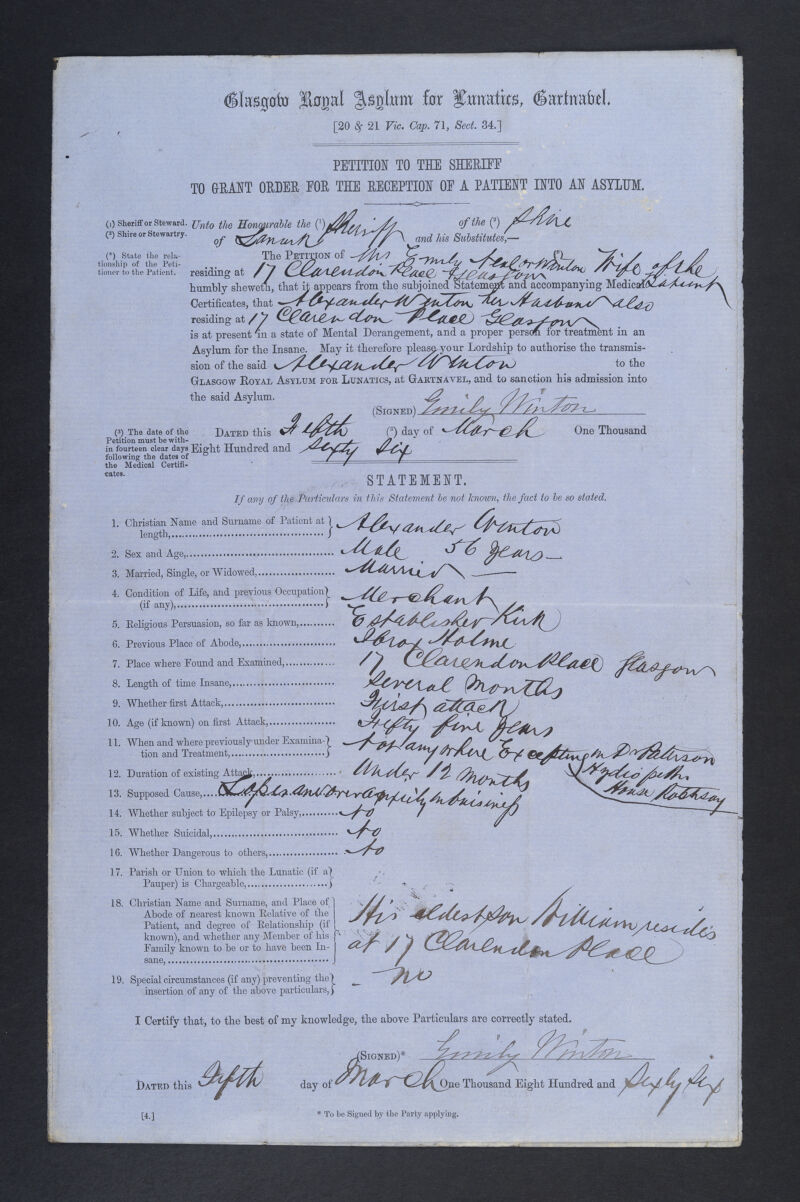 Glasgow Royal Asylum for Lunatics, Gartnavel.
[20 & 21 Vic. Cap. 71, Sect. 34.]
PETITION TO THE SHERIFF
TO GRANT ORDER FOR THE RECEPTION OF A PATIENT INTO AN ASYLUM.
(1) Sheriff or Steward.
(2) Shire or Stewartry.
Unto the Honourable the (1) Sheriff of the (2) Shire
of Lanark and his Substitutes,—
(*) State the rela-
tionship of the Peti-
tioner to the Patient.
The PETITION of Mrs Emily or Winton (*) Wife of the
residing at 17 Clarendon Place Glasgow Patient
humbly sheweth, that it appears from the subjoined Statement and accompanying Medical
Certificates, that Alexander Winton her Husband also
residing at 17 Clarendon Place Glasgow
is at present in a state of Mental Derangement, and a proper person for treatment in an
Asylum for the Insane. May it therefore please your Lordship to authorise the transmis-
sion of the said Alexander Winton to the
GLASGOW ROYAL ASYLUM FOR LUNATICS, AT GARTNAVEL, and to sanction his admission into
the said Asylum.
(SIGNED) Emily Winton
(3) The date of the
Petition must be with-
in fourteen clear days
following the dates of
the Medical Certifi-
cates.
DATED this Fifth (3) day of March One Thousand
Eight Hundred and Sixty Six
STATEMENT.
If any of the Particulars in this Statement be not known, the fact to be so stated.
1. Christian Name and Surname of Patient at
length, Alexander Winton
2. Sex and Age, Male 56 years—
3. Married, Single, or Widowed, Married —
4. Condition of Life, and previous Occupation
(if any), Merchant
5. Religious Persuasion, so far as known, Established Kirk
6. Previous Place of Abode, Ibrox Holme
7. Place where Found and Examined, 17 Clarendon Place Glasgow
8. Length of time Insane, Several Months
9. Whether first Attack, First attack
10. Age (if known) on first Attack, Fifty five years
11. When and where previously under Examina-
tion and Treatment, Not anywhere Excepting in Dr Paterson
Hydropathic
House Rothesay
12. Duration of existing Attack, Under 12 Months
13. Supposed Cause, Losses and over anxiety in business
14. Whether subject to Epilepsy or Palsy, No
15. Whether Suicidal, No
16. Whether Dangerous to others, No
17. Parish or Union to which the Lunatic (if a
Pauper) is Chargeable,
18. Christian Name and Surname, and Place of
Abode of nearest known Relative of the
Patient, and degree of Relationship (if
known), and whether any Member of his
Family known to be or to have been In-
sane,
His eldest son William resides
at 17 Clarendon Place
19. Special circumstances (if any) preventing the
insertion of any of the above particulars, - No
I Certify that, to the best of my knowledge, the above Particulars are correctly stated.
(SIGNED)* Emily Winton
DATED this Fifth day of March One Thousand Eight Hundred and Sixty Six
[4.]
* To be Signed by the Party applying.